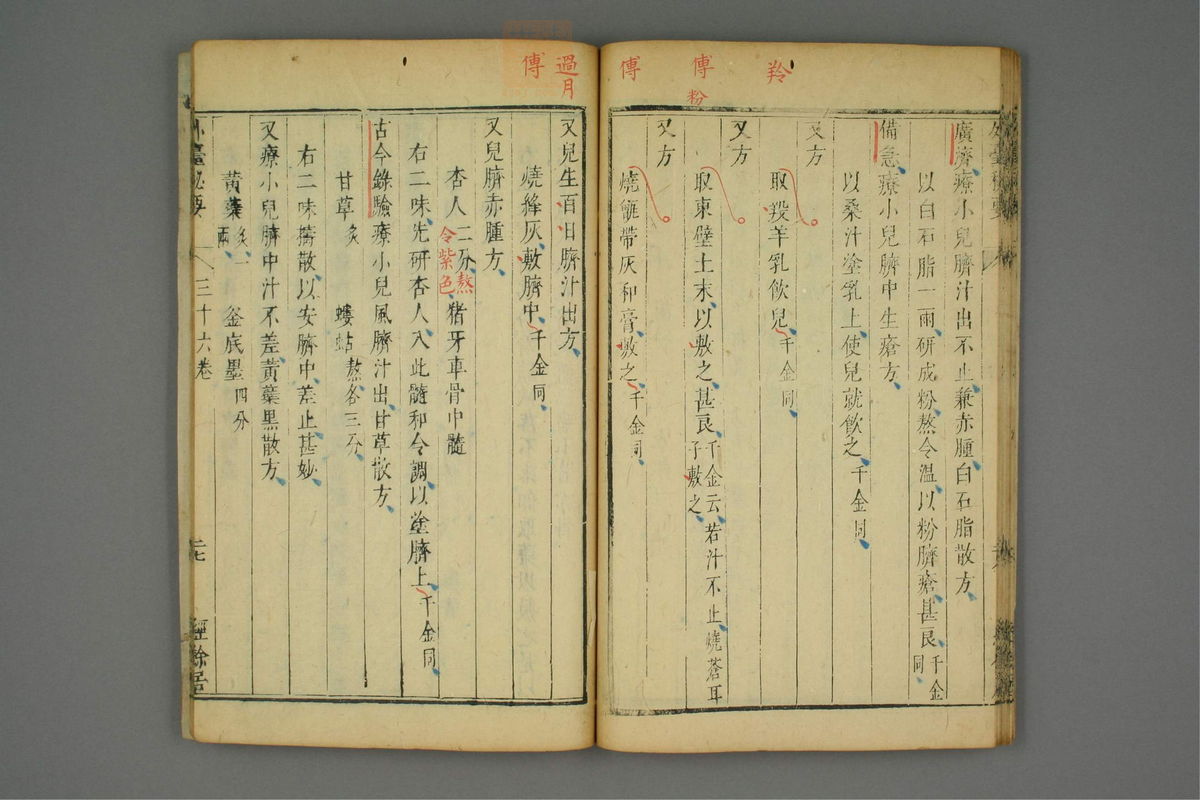 羚
傅
粉
傅
廣濟療小兒臍汁出不止兼赤腫白石脂散方
以白石脂一兩研成粉熬令溫以粉臍瘡甚良千金同
備急療小兒臍中生瘡方
以桑汁塗乳上使兒就飲之千金同
又方
取羖羊乳飲兒千金同
又方
取東壁土末以敷之甚良千金云若汁不止燒蒼耳子敷之
又方
燒甑帶灰和膏敷之千金同
過月
傅
又兒生百日臍汁出方
燒絳灰敷臍中千金同
又兒臍赤腫方
杏人二分熬令紫色 猪牙車骨中髓
右二味先研杏人入此髓和令調以塗臍上千金同
古今錄驗療小兒風臍汁出甘草散方
甘草炙 螻蛄熬各三分
右二味擣散以安臍中差止甚妙
又療小兒臍中汁不差黃蘗黑散方
黃蘗炙一兩 釜底墨四分
外臺秘要 三十六卷 二七 經餘居